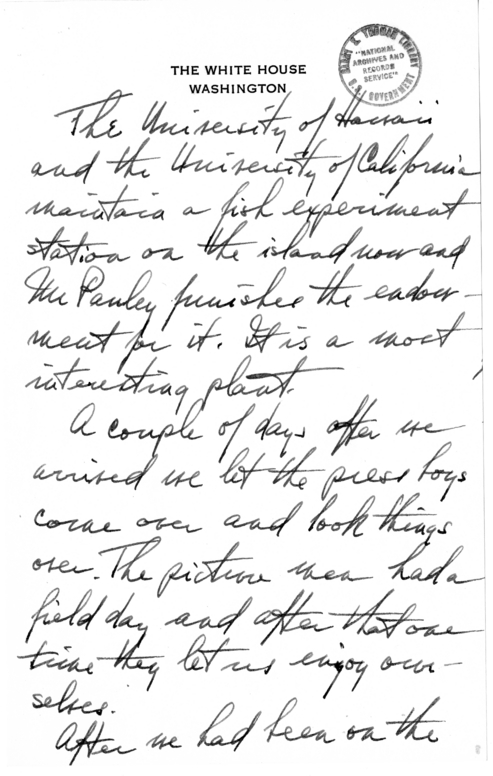 THE WHITE HOUSE
WASHINGTON
HARRY S. TRUMAN LIBRARY
"NATIONAL
ARCHIVES AND
RECORDS
SERVICE"
U.S. GOVERNMENT
The University of Hawaii
and the University of California
maintain a fish experiment
station on the island now and
Mr Pauley furnishes the endow-
ment for it. It is a most
interesting plant.
A couple of days after we
arrived we let the press boys
come over and look things
over. The picture men had a
field day and after that one
time they let us enjoy our-
selves.
After we had been on the